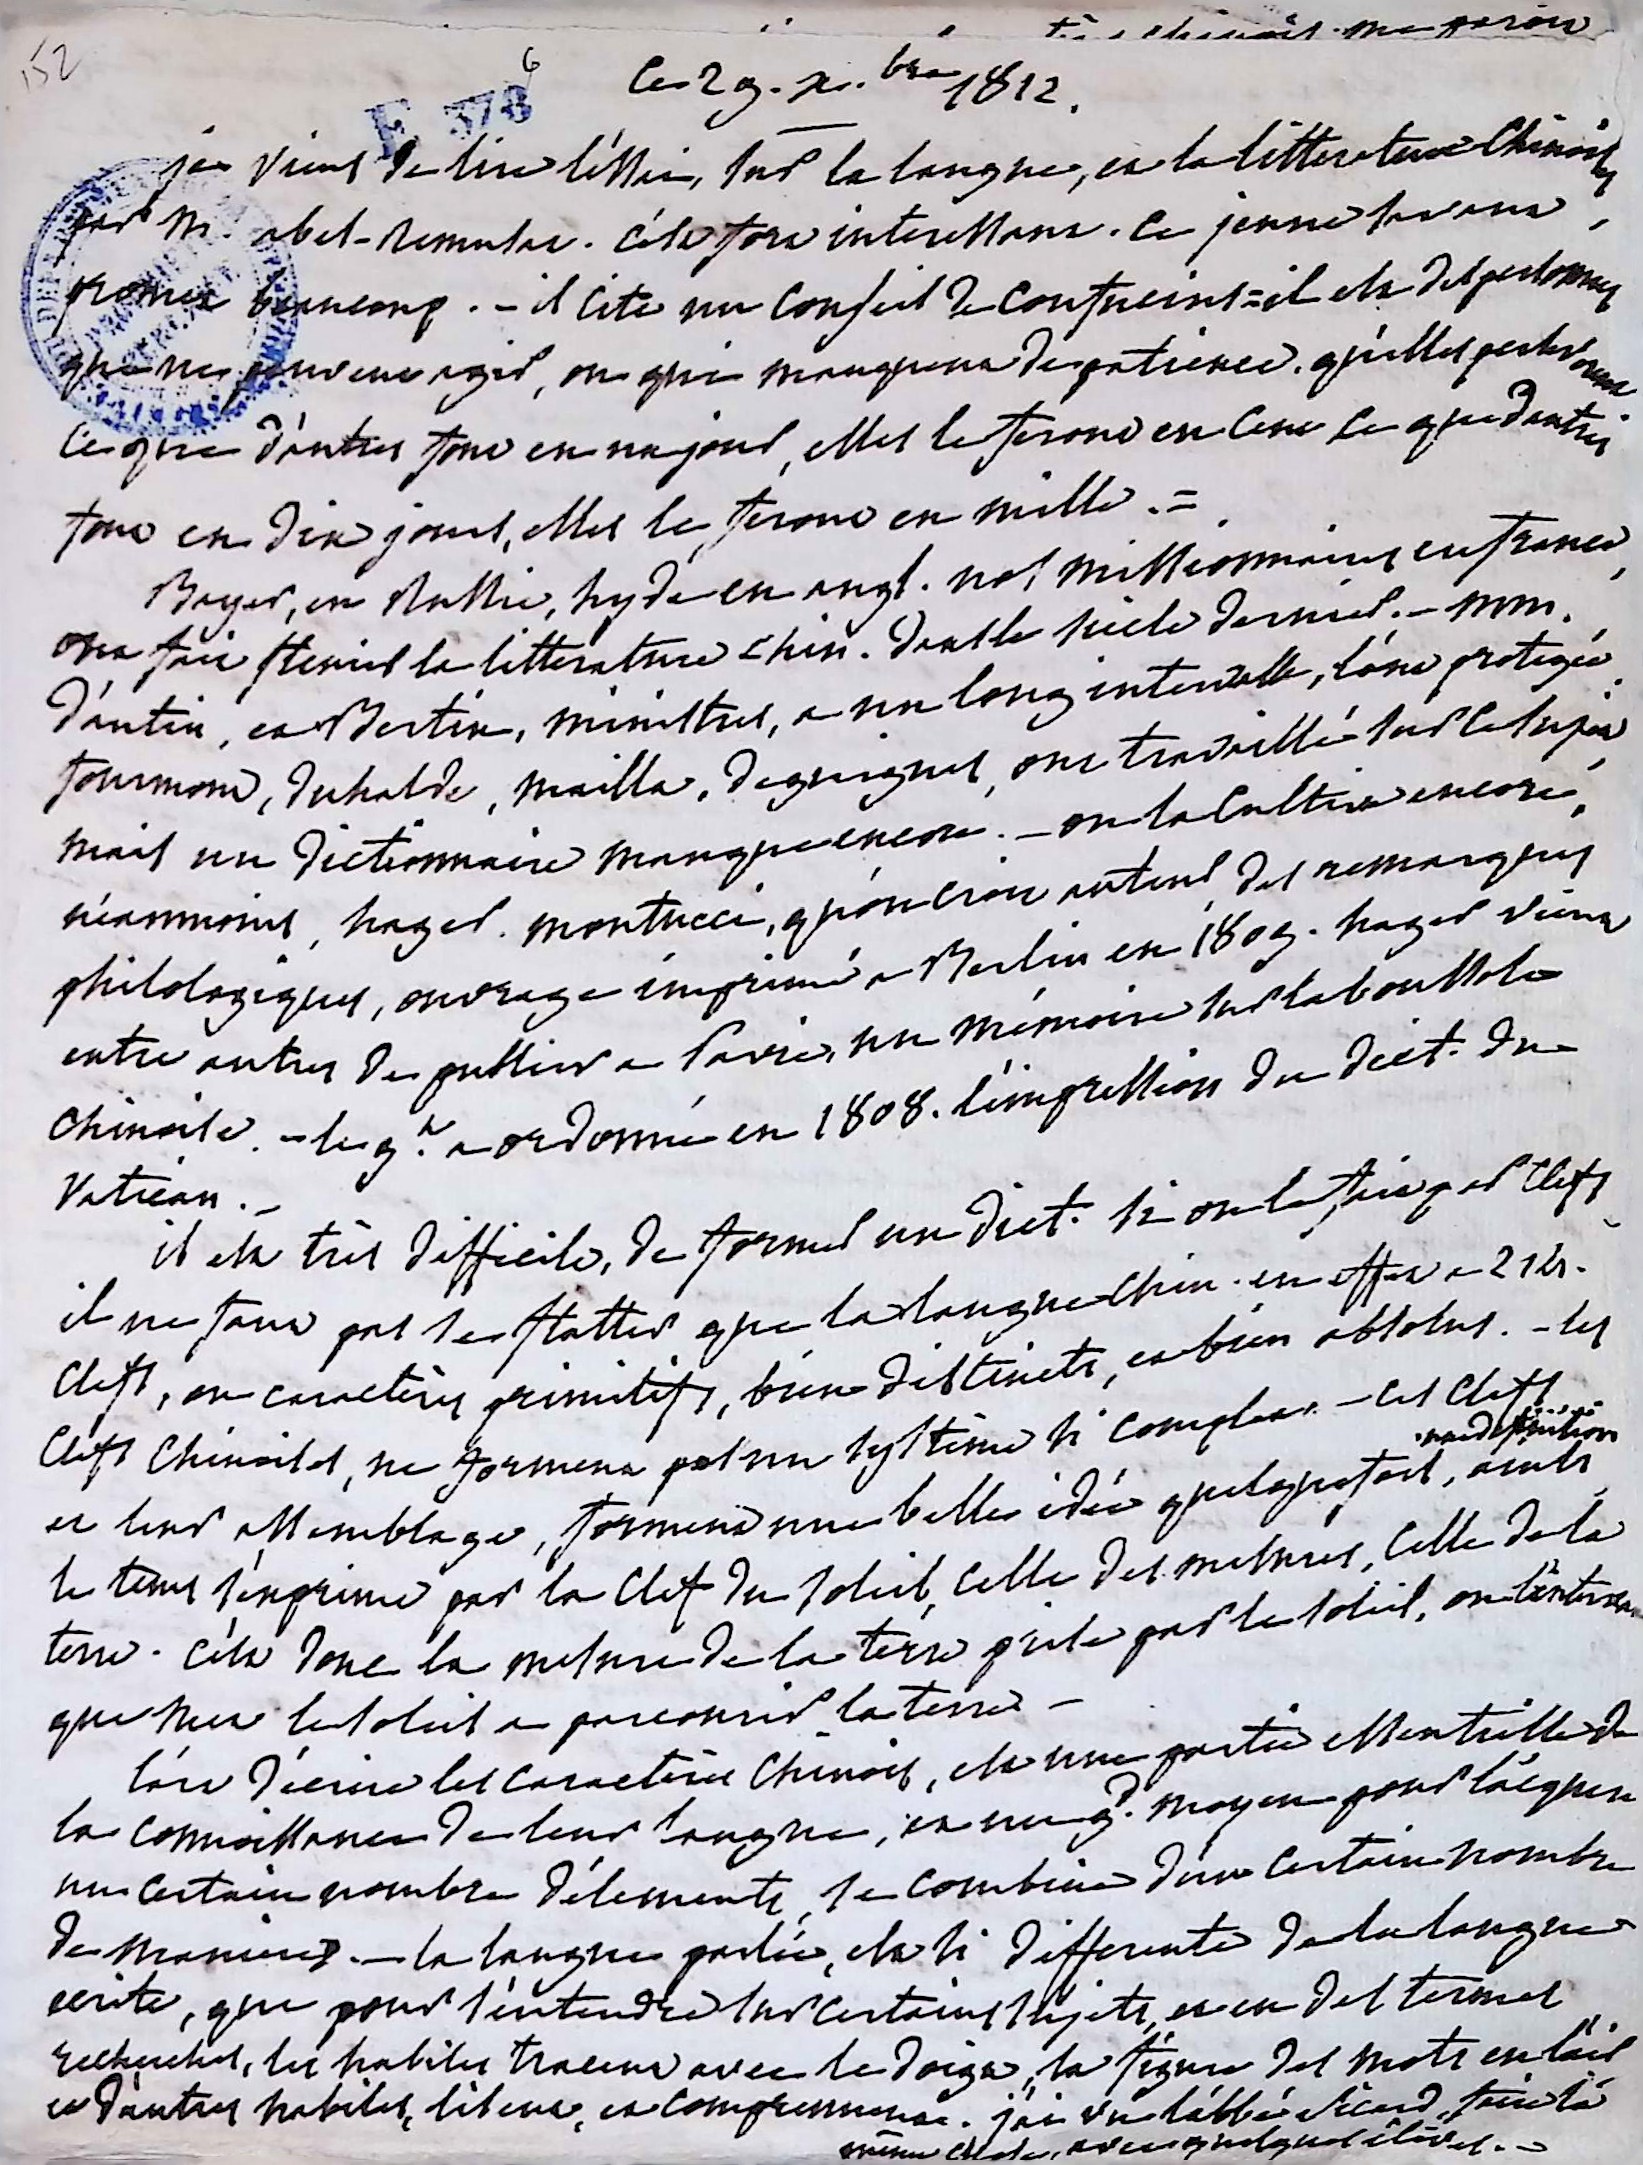 152
6
E 378
ce 29. x.bre 1812.
je viens de lire l'essai, sur la langue, et la litterature chinoises
par M. abel-remusat. c'est fort interessant. ce jeune savant,
promet beaucoup. - il cite un conseil de confucius = il est des personnes
qui ne peuvent agir, ou qui manquent de patience. qu'elles perseverent
ce que d'autres font en un jour, elles le feront en cent ce que d'autres
font en dix jours, elles le feront en mille. =
Bayer, en Russie, hyde en angl. nos missionnaires en france,
ont fait fleurir la litterature chin. dans le siecle dernier. - mm.
d'antin, et Bertin, ministres, a un long intervalle, l'ont protegée.
fourmont, duhalde, mailla, deguignes, ont travaillé sur ce sujet,
mais un dictionnaire manque encore. - on la cultive encore,
néanmoins, hager. montucci, qu'on croit auteur, des remarques
philologiques, ouvrage imprimé a Berlin en 1809. hager vient
entre autres de publier a Pavie, un mémoire sur la boussole
chinoise. - le g.t a ordonné en 1808. l'impression du dict. du
Vatican. -
il est très difficile, de former un dict. si on le fait par clefs,
il ne faut pas se flatter que la langue chin. en effet a 214.
clefs, ou caractères primitifs, bien distincts, et bien absolus. - les
clefs chinoises, ne forment pas un systême si complet. - ces clefs
et leur assemblage, forment une belle idée quelquefois, ainsi
une definition
le tems s'exprime par la clef du soleil, celle des mesures, celle de la
terre. c'est donc la mesure de la terre prise par le soleil, ou l'intervalle
que met le soleil a parcourir la terre -
l'art d'écrire les caractères chinois, est une partie essentielle de
la connaissance de leur langue, et un gd. moyen pour l'acquerir
un certain nombre d'élements, se combine d'un certain nombre
de manieres. - la langue parlée, est si differente de la langue
écrite, que pour s'entendre sur certains sujets, et en des termes
recherchés, les habiles tracent avec le doigt, la figure des mots en l'air
et d'autres habiles, lisent, et comprennent. j'ai vu l'abbé sicard, faire la
même chose, avec quelques élèves. -